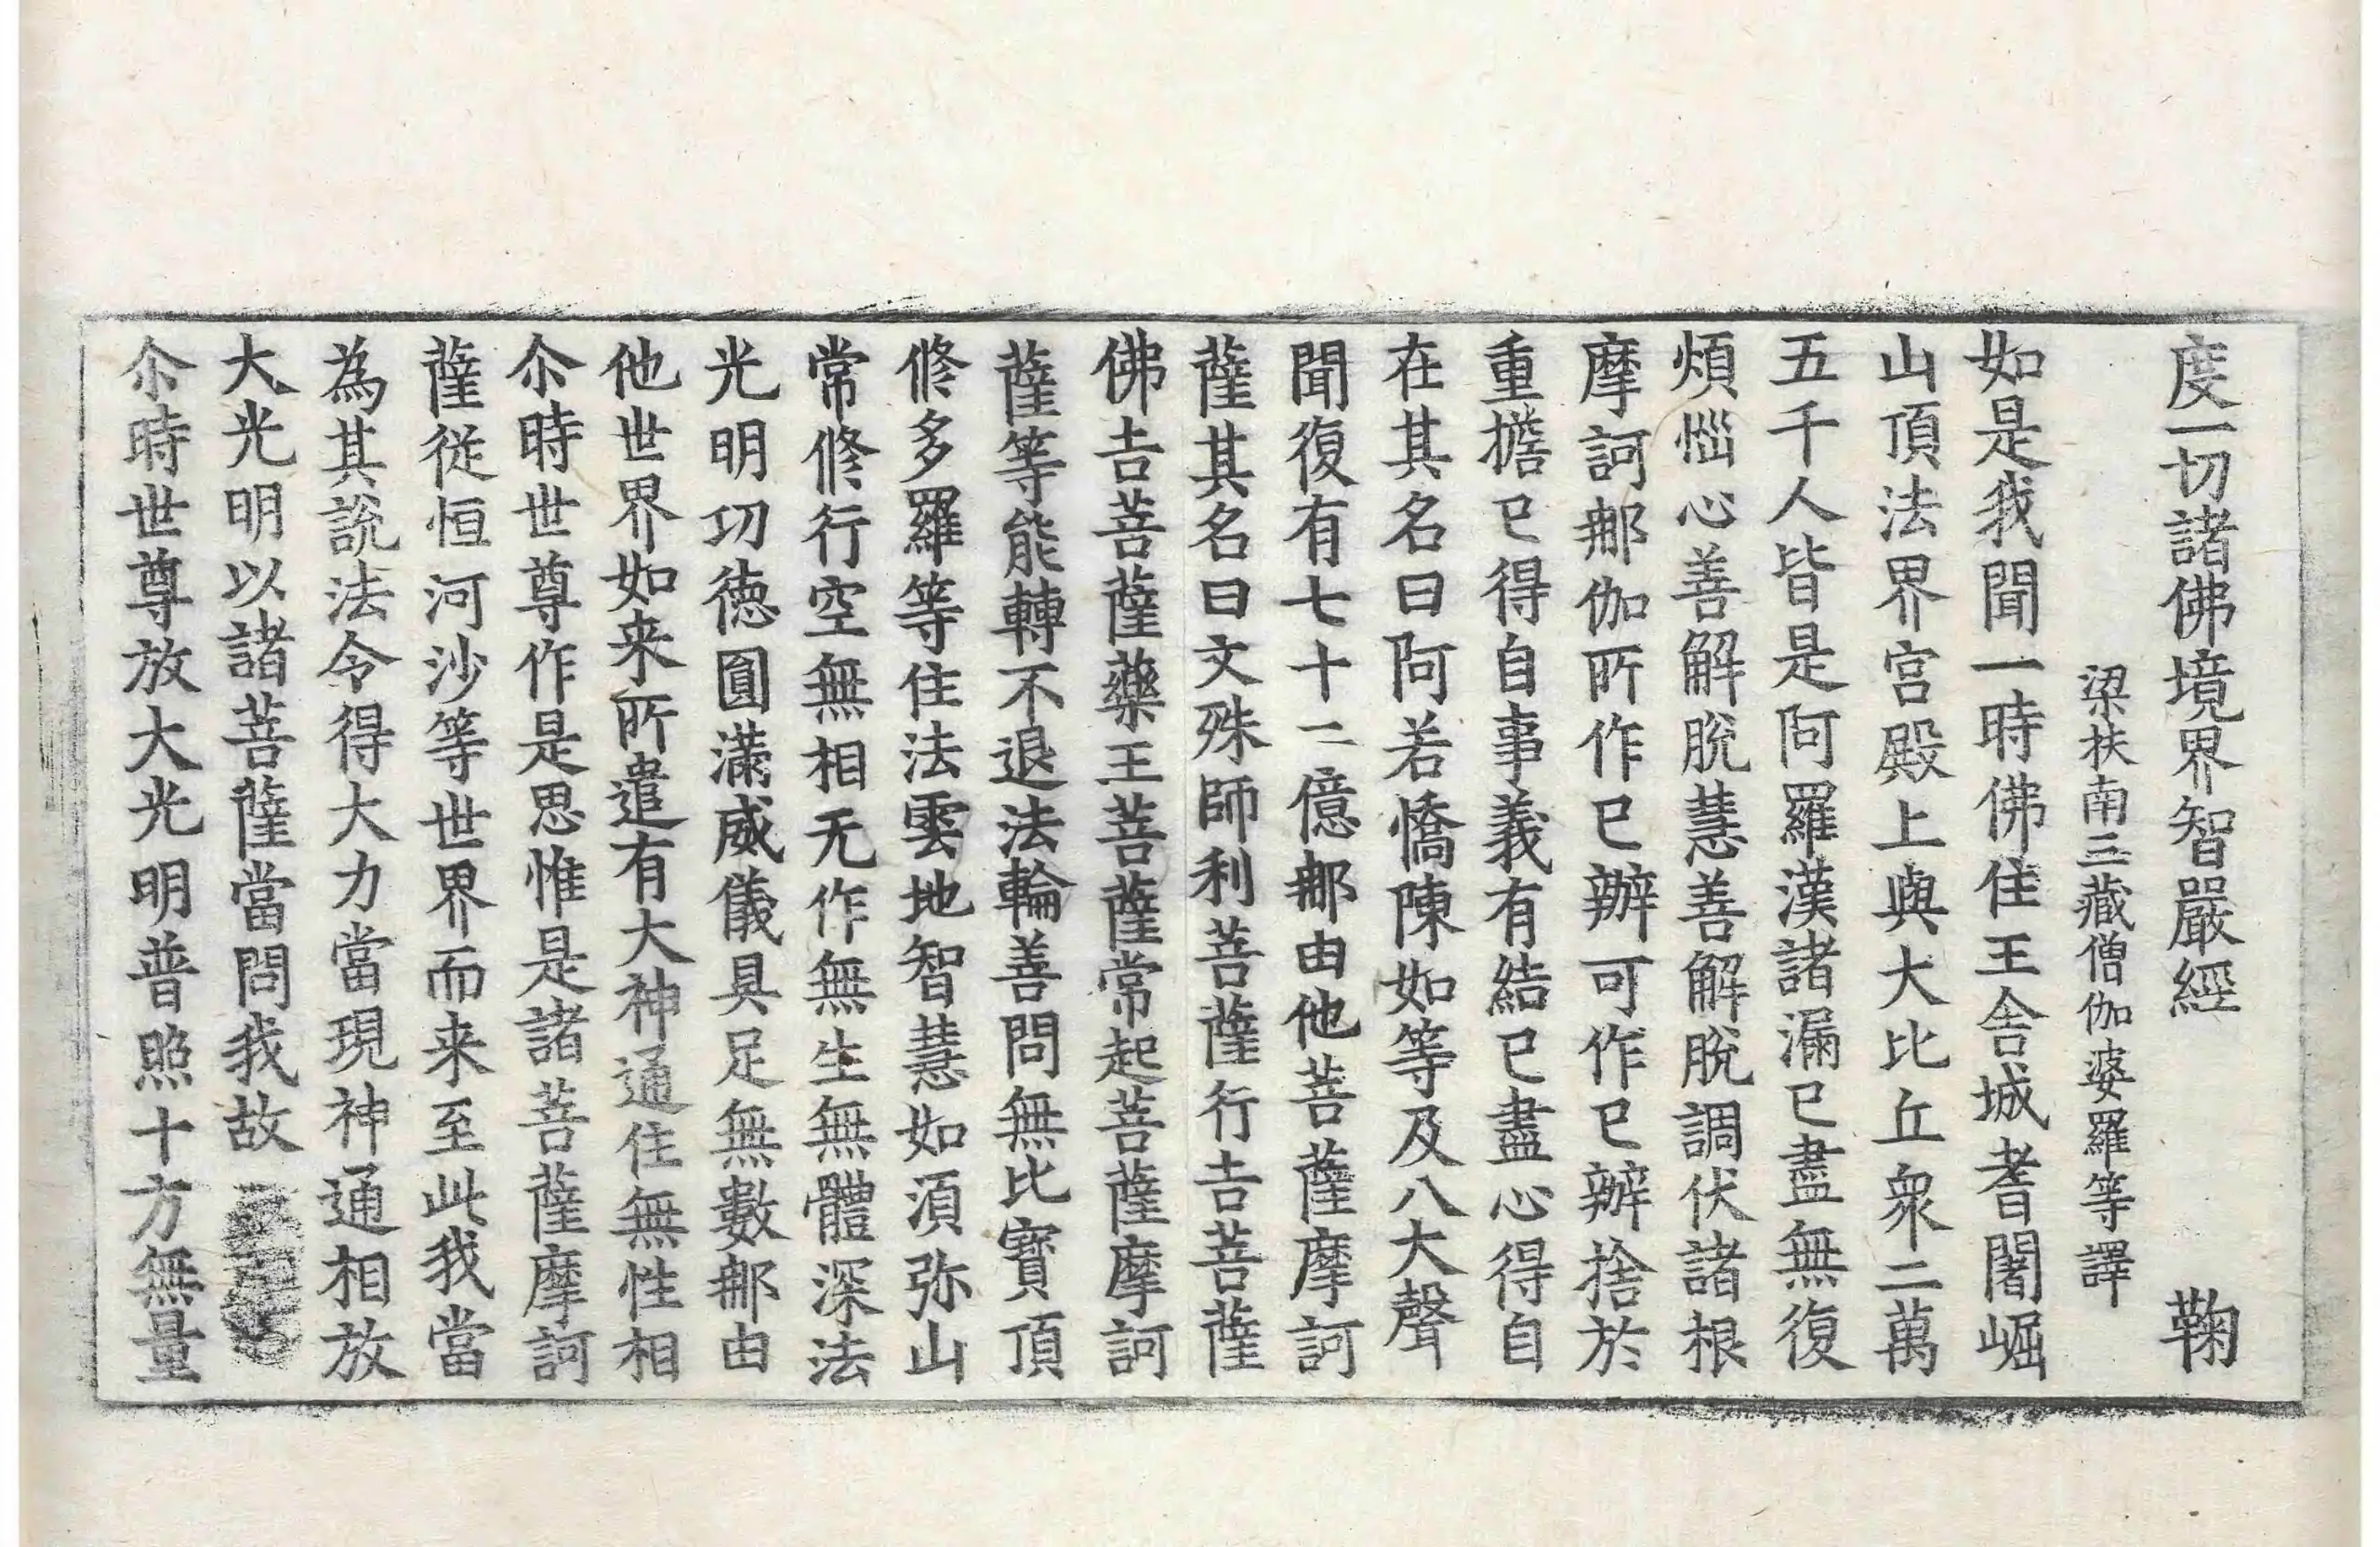 度一切諸佛境界智嚴經 鞠
梁扶南三藏僧伽婆羅等譯
如是我聞一時佛住王舎城耆闍崛
山頂法界宫殿上與大比丘衆二萬
五千人皆是阿羅漢諸漏已盡無復
煩惱心善解脫慧善解脫調伏諸根
摩訶那伽所作已辦可作已辦捨於
重擔已得自事義有結已盡心得自
在其名曰阿若憍陳如等及八大聲
聞復有七十二億那由他菩薩摩訶
薩其名曰文殊師利菩薩行吉菩薩
佛吉菩薩藥王菩薩常起菩薩摩訶
薩等能轉不退法輪善問無比寳頂
修多羅等住法雲地智慧如須弥山
常修行空無相无作無生無體深法
光明功徳圓滿威儀具足無數那由
他世界如来所遣有大神通住無性相
尒時世尊作是思惟是諸菩薩摩訶
薩従恒河沙等世界而来至此我當
為其說法令得大力當現神通相放
大光明以諸菩薩當問我故
尒時世尊放大光明普照十方無量